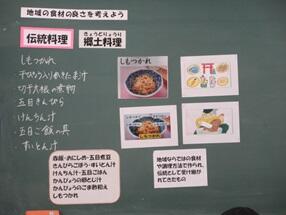 地域の食材の良さを考えよう
伝統料理
きょうどりょうり
郷土料理
しもつかれ
かき玉汁
切干大根の煮物
五目きんぴら
けんちん汁
五目ご飯の具
すいとん汁
しもつかれ
赤飯・おにしめ・五目煮豆
きんぴらごぼう・すいとん汁
けんちん汁・五目ごはん
かんぴょうの卵とじ汁
かんぴょうのごま酢和え
しもつかれ
地域ならではの食材
や調理方法で作られ、
伝統として受け継が
れてきたもの